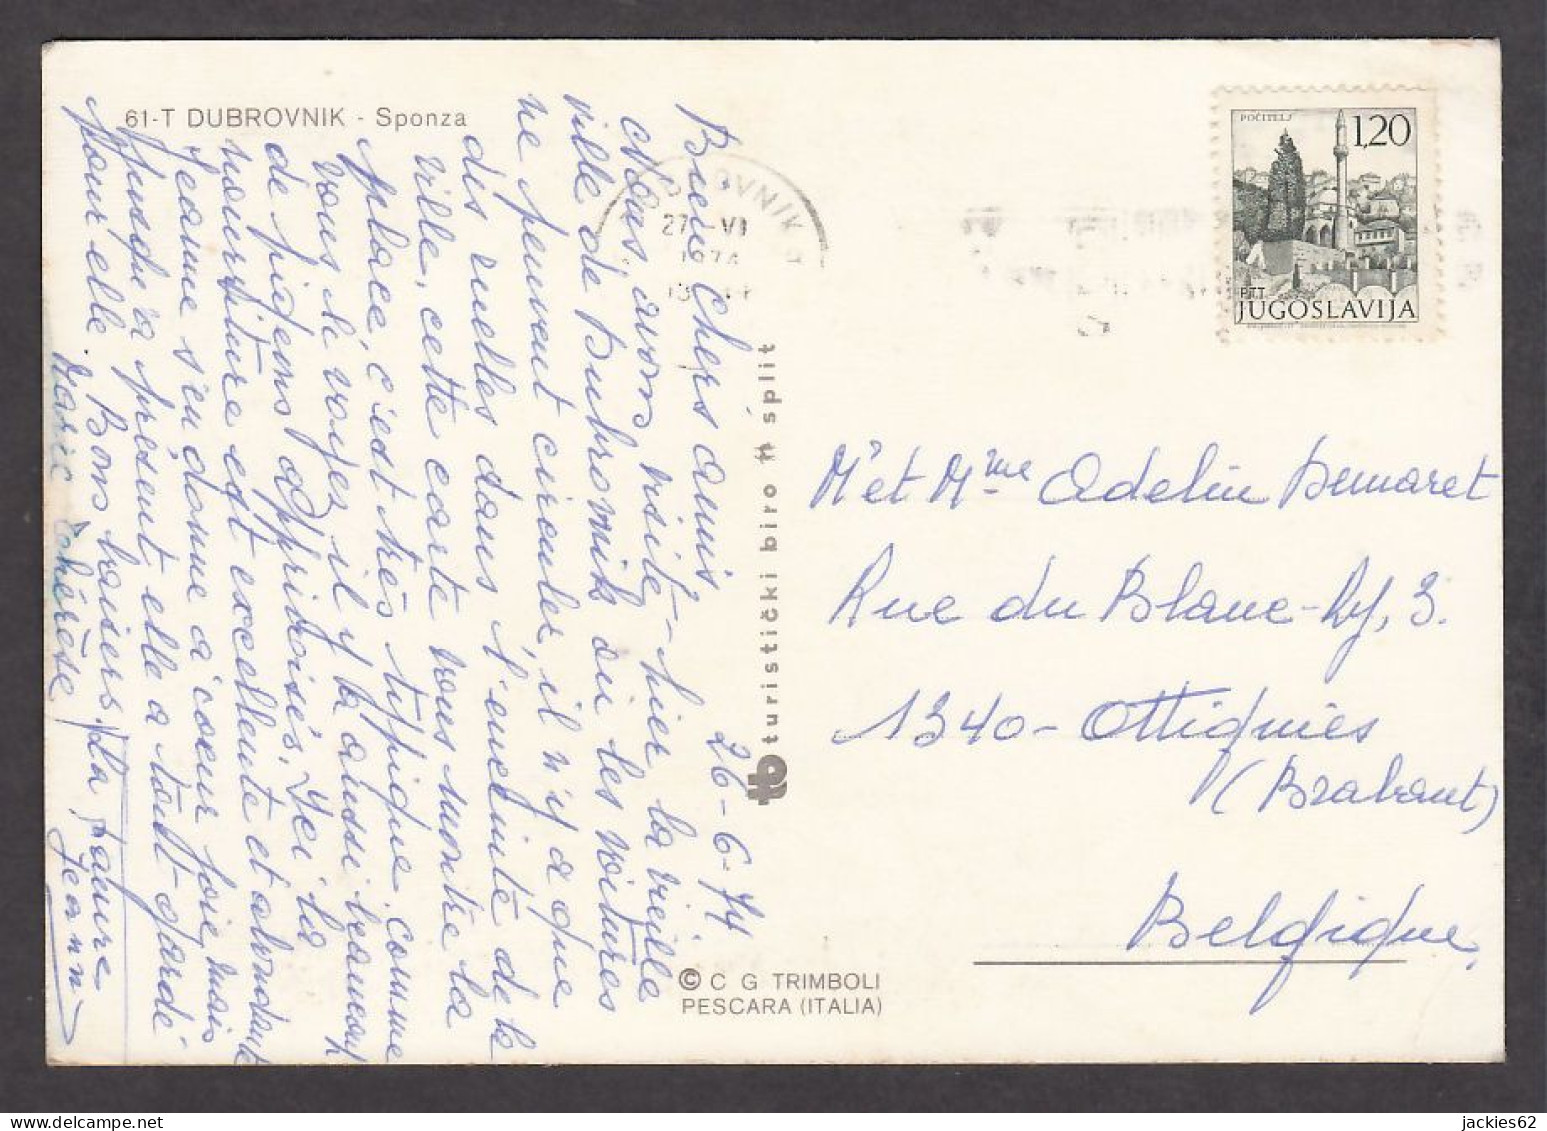 61-T DUBROVNIK - Sponza
26-6-74
Bien chers amis
Nous avons visité hier la vieille
ville de Dubrovnik où les voitures
ne peuvent circuler, il n'y a que
des ruelles dans l'enceinte de la
ville, cette carte vous montre la
place, c'est très typique comme
vous le voyez il y a aussi beaucoup
de pigeons apprivoisés. Ici la
nourriture est excellente et abondante
Jeanne s'en donne à coeur joie, mais
jusqu'à présent elle a tout gardé
pour elle. Bons baisers
Marie Thérèse
Jeanne
turistički biro split
© C G TRIMBOLI
PESCARA (ITALIA)
DUBROVNIK
27 VI
1974
POČITELJ
1,20
PTT
JUGOSLAVIJA
Mr et Mme Adelin Demaret
Rue du Blanc-Ry, 3.
1340 - Ottignies
(Brabant)
Belgique
jackies62